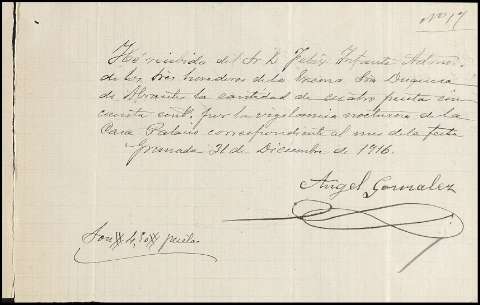 Nº 17
He recibido del Sr D. Felix Infante Admor.
de los tres herederos de la Excma Sra Duquesa
de Abrantes la cantidad de cuatro pesetas cin-
cuenta cents. por la vigilancia nocturna de la
Casa Palacio correspondiente al mes de la fecha
Granada 31 de Diciembre de 1916.
Angel Gonzalez
Son # 4,50 # pesetas